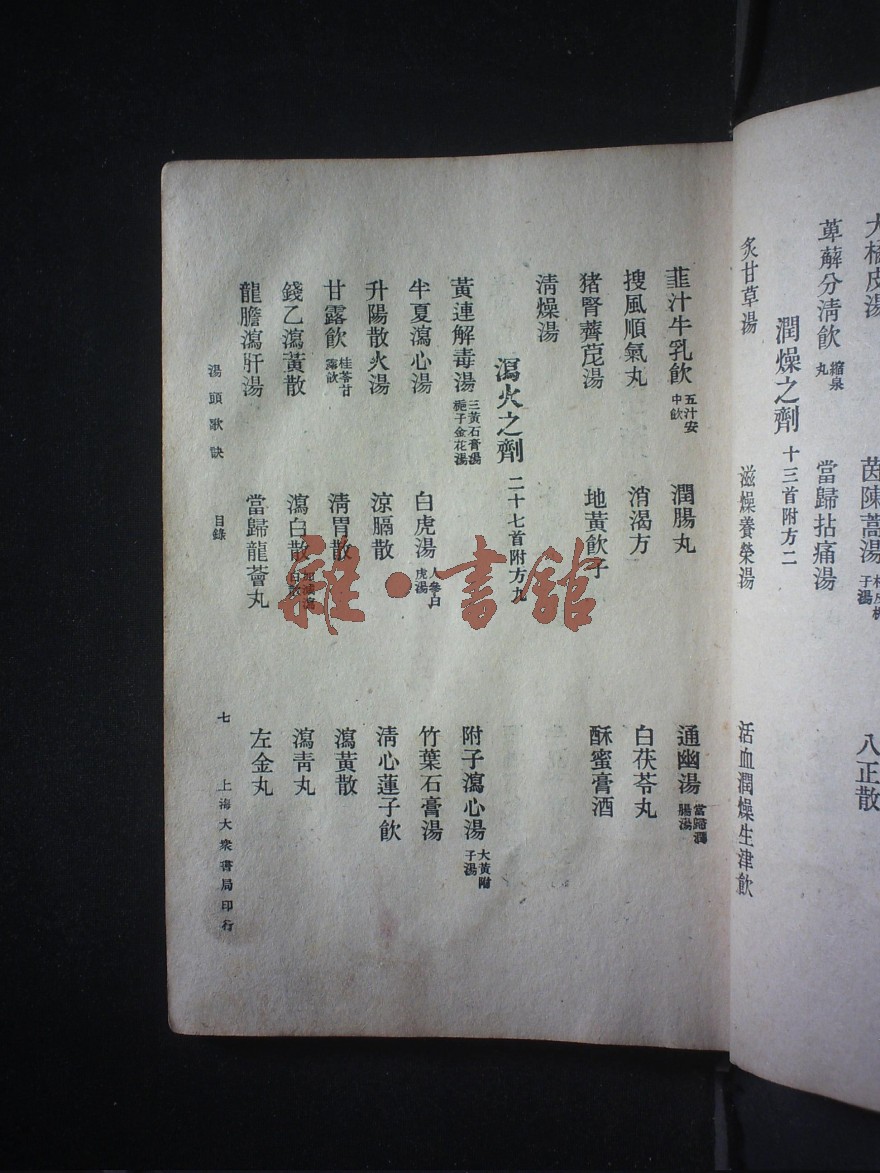 大橘皮湯 茵陳蒿湯 八正散
萆薢分清飲 縮泉丸 當歸拈痛湯
潤燥之劑 十三首附方二
炙甘草湯 滋燥養榮湯 活血潤燥生津飲
韭汁牛乳飲 五汁安中飲 潤腸丸 通幽湯 當歸潤腸湯
搜風順氣丸 消渴方 白茯苓丸
猪腎薺苨湯 地黃飲子 酥蜜膏酒
清燥湯
瀉火之劑 二十七首附方九
黃連解毒湯 三黃石膏湯 梔子金花湯 附子瀉心湯 大黃附子湯
半夏瀉心湯 白虎湯 人參白虎湯 竹葉石膏湯
升陽散火湯 涼膈散 清心蓮子飲
甘露飲 桂苓甘露飲 清胃散 瀉黃散
錢乙瀉黃散 瀉白散 瀉青丸
龍膽瀉肝湯 當歸龍薈丸 左金丸
湯頭歌訣 目錄 七 上海大衆書局印行
雜·書館